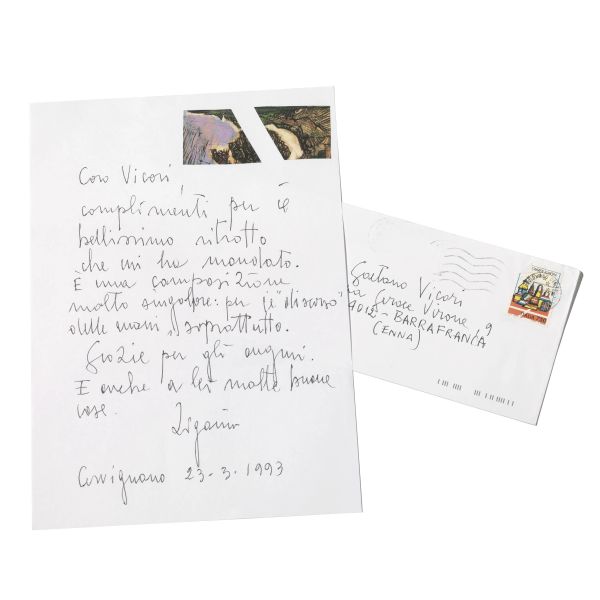 Caro Vicori,
complimenti per il
bellissimo ritratto
che mi ha mandato.
È una composizione
molto singolare: per il "discorso"
delle mani, soprattutto.
Grazie per gli auguri.
E anche a lei molte buone
cose.
Zigaina
Cervignano 23-3-1993
Gaetano Vicori
Verone 9
94012 - BARRAFRANCA
(ENNA)